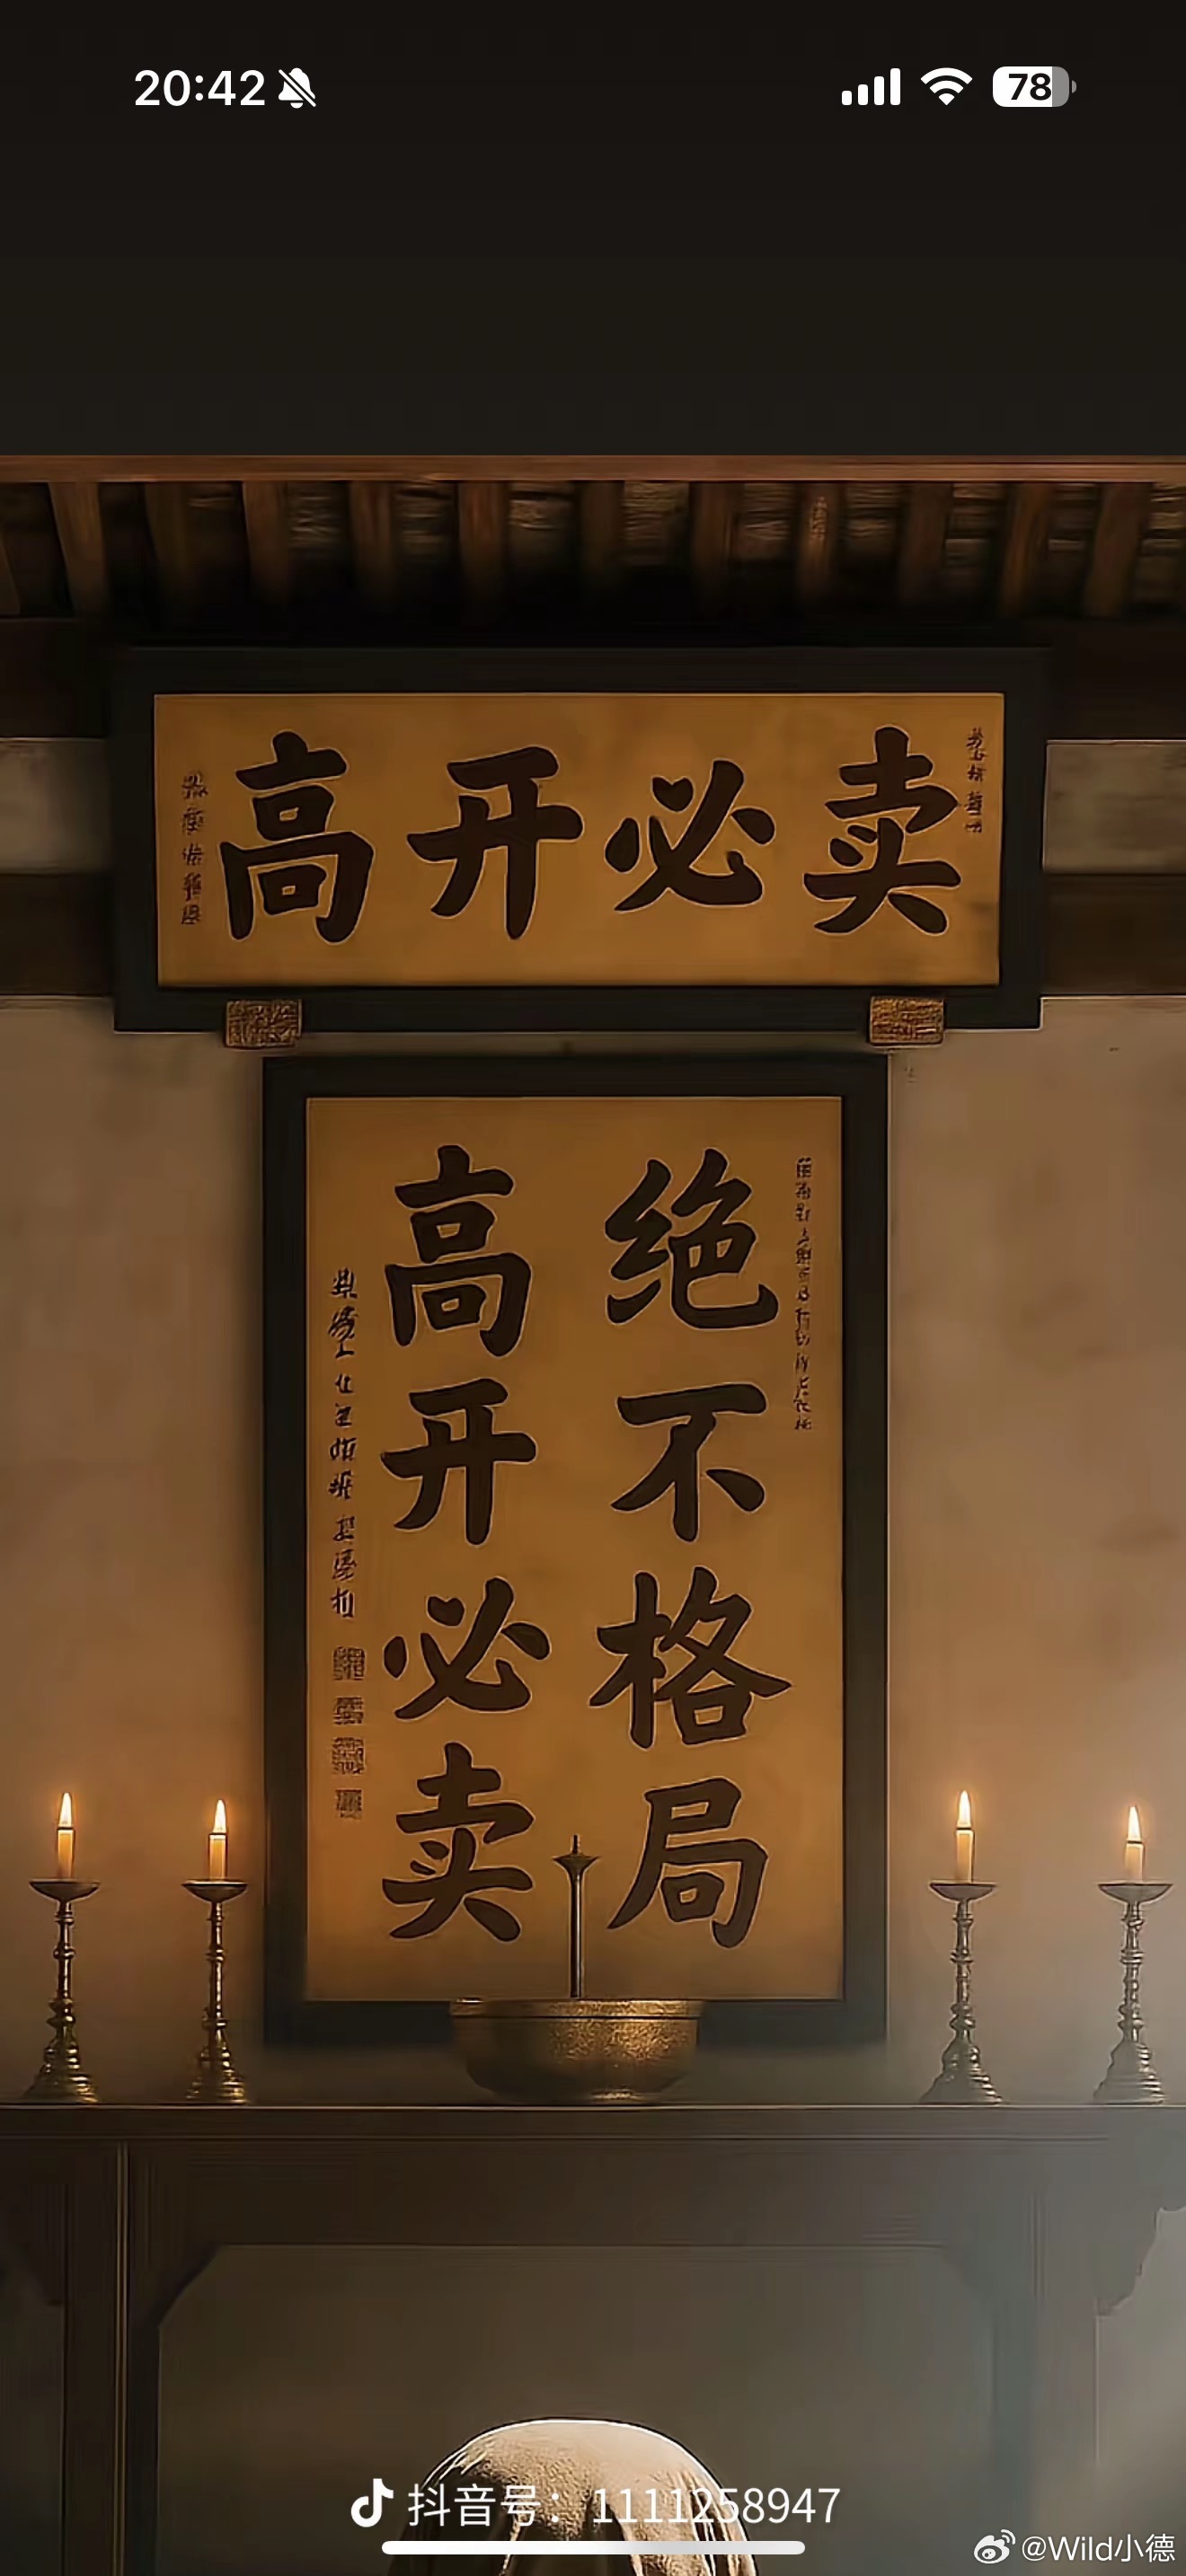 20:42
78
高开必卖
绝不格局
高开必卖
抖音号：1111258947
@Wild小德